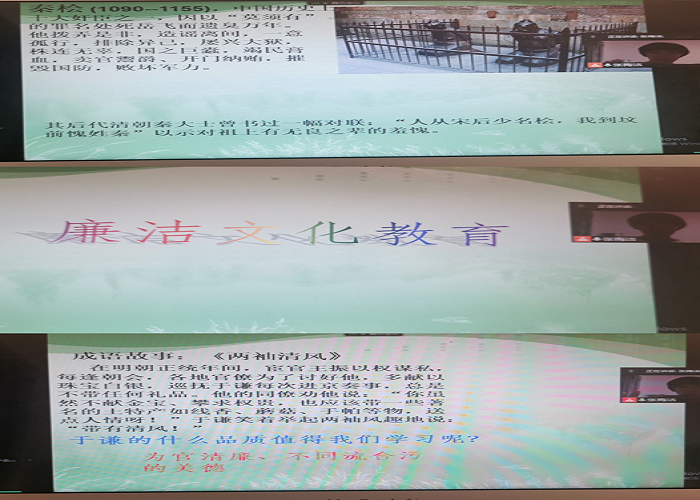 秦桧 (1090--1155), 中国历史上
十大奸臣之一, 因以“莫须有”
的罪名处死岳飞而遗臭万年。
他拨弄是非, 造谣离间, 一意
孤行, 排除异己, 屡兴大狱,
株连无辜, 国之巨蠹, 竭民膏
血, 卖官鬻爵、开门纳贿, 摧
毁国防, 败坏军力。
其后代清朝秦大士曾书过一幅对联: “人从宋后少名桧, 我到坟
前愧姓秦”以示对祖上有无良之辈的羞愧。
廉洁文化教育
成语故事: 《两袖清风》
在明朝正统年间, 宦官王振以权谋私,
每逢朝会, 各地官僚为了讨好他, 多献以
珠宝白银, 巡抚于谦每次进京奏事, 总是
不带任何礼品。他的同僚劝他说: “你虽
然不献金宝、攀求权贵, 也应该带一些著
名的土特产如线香、蘑菇、手帕等物, 送
点人情呀!” 于谦笑着举起两袖风趣地说:
“带有清风!”
于谦的什么品质值得我们学习呢?
为官清廉、不同流合污
的美德